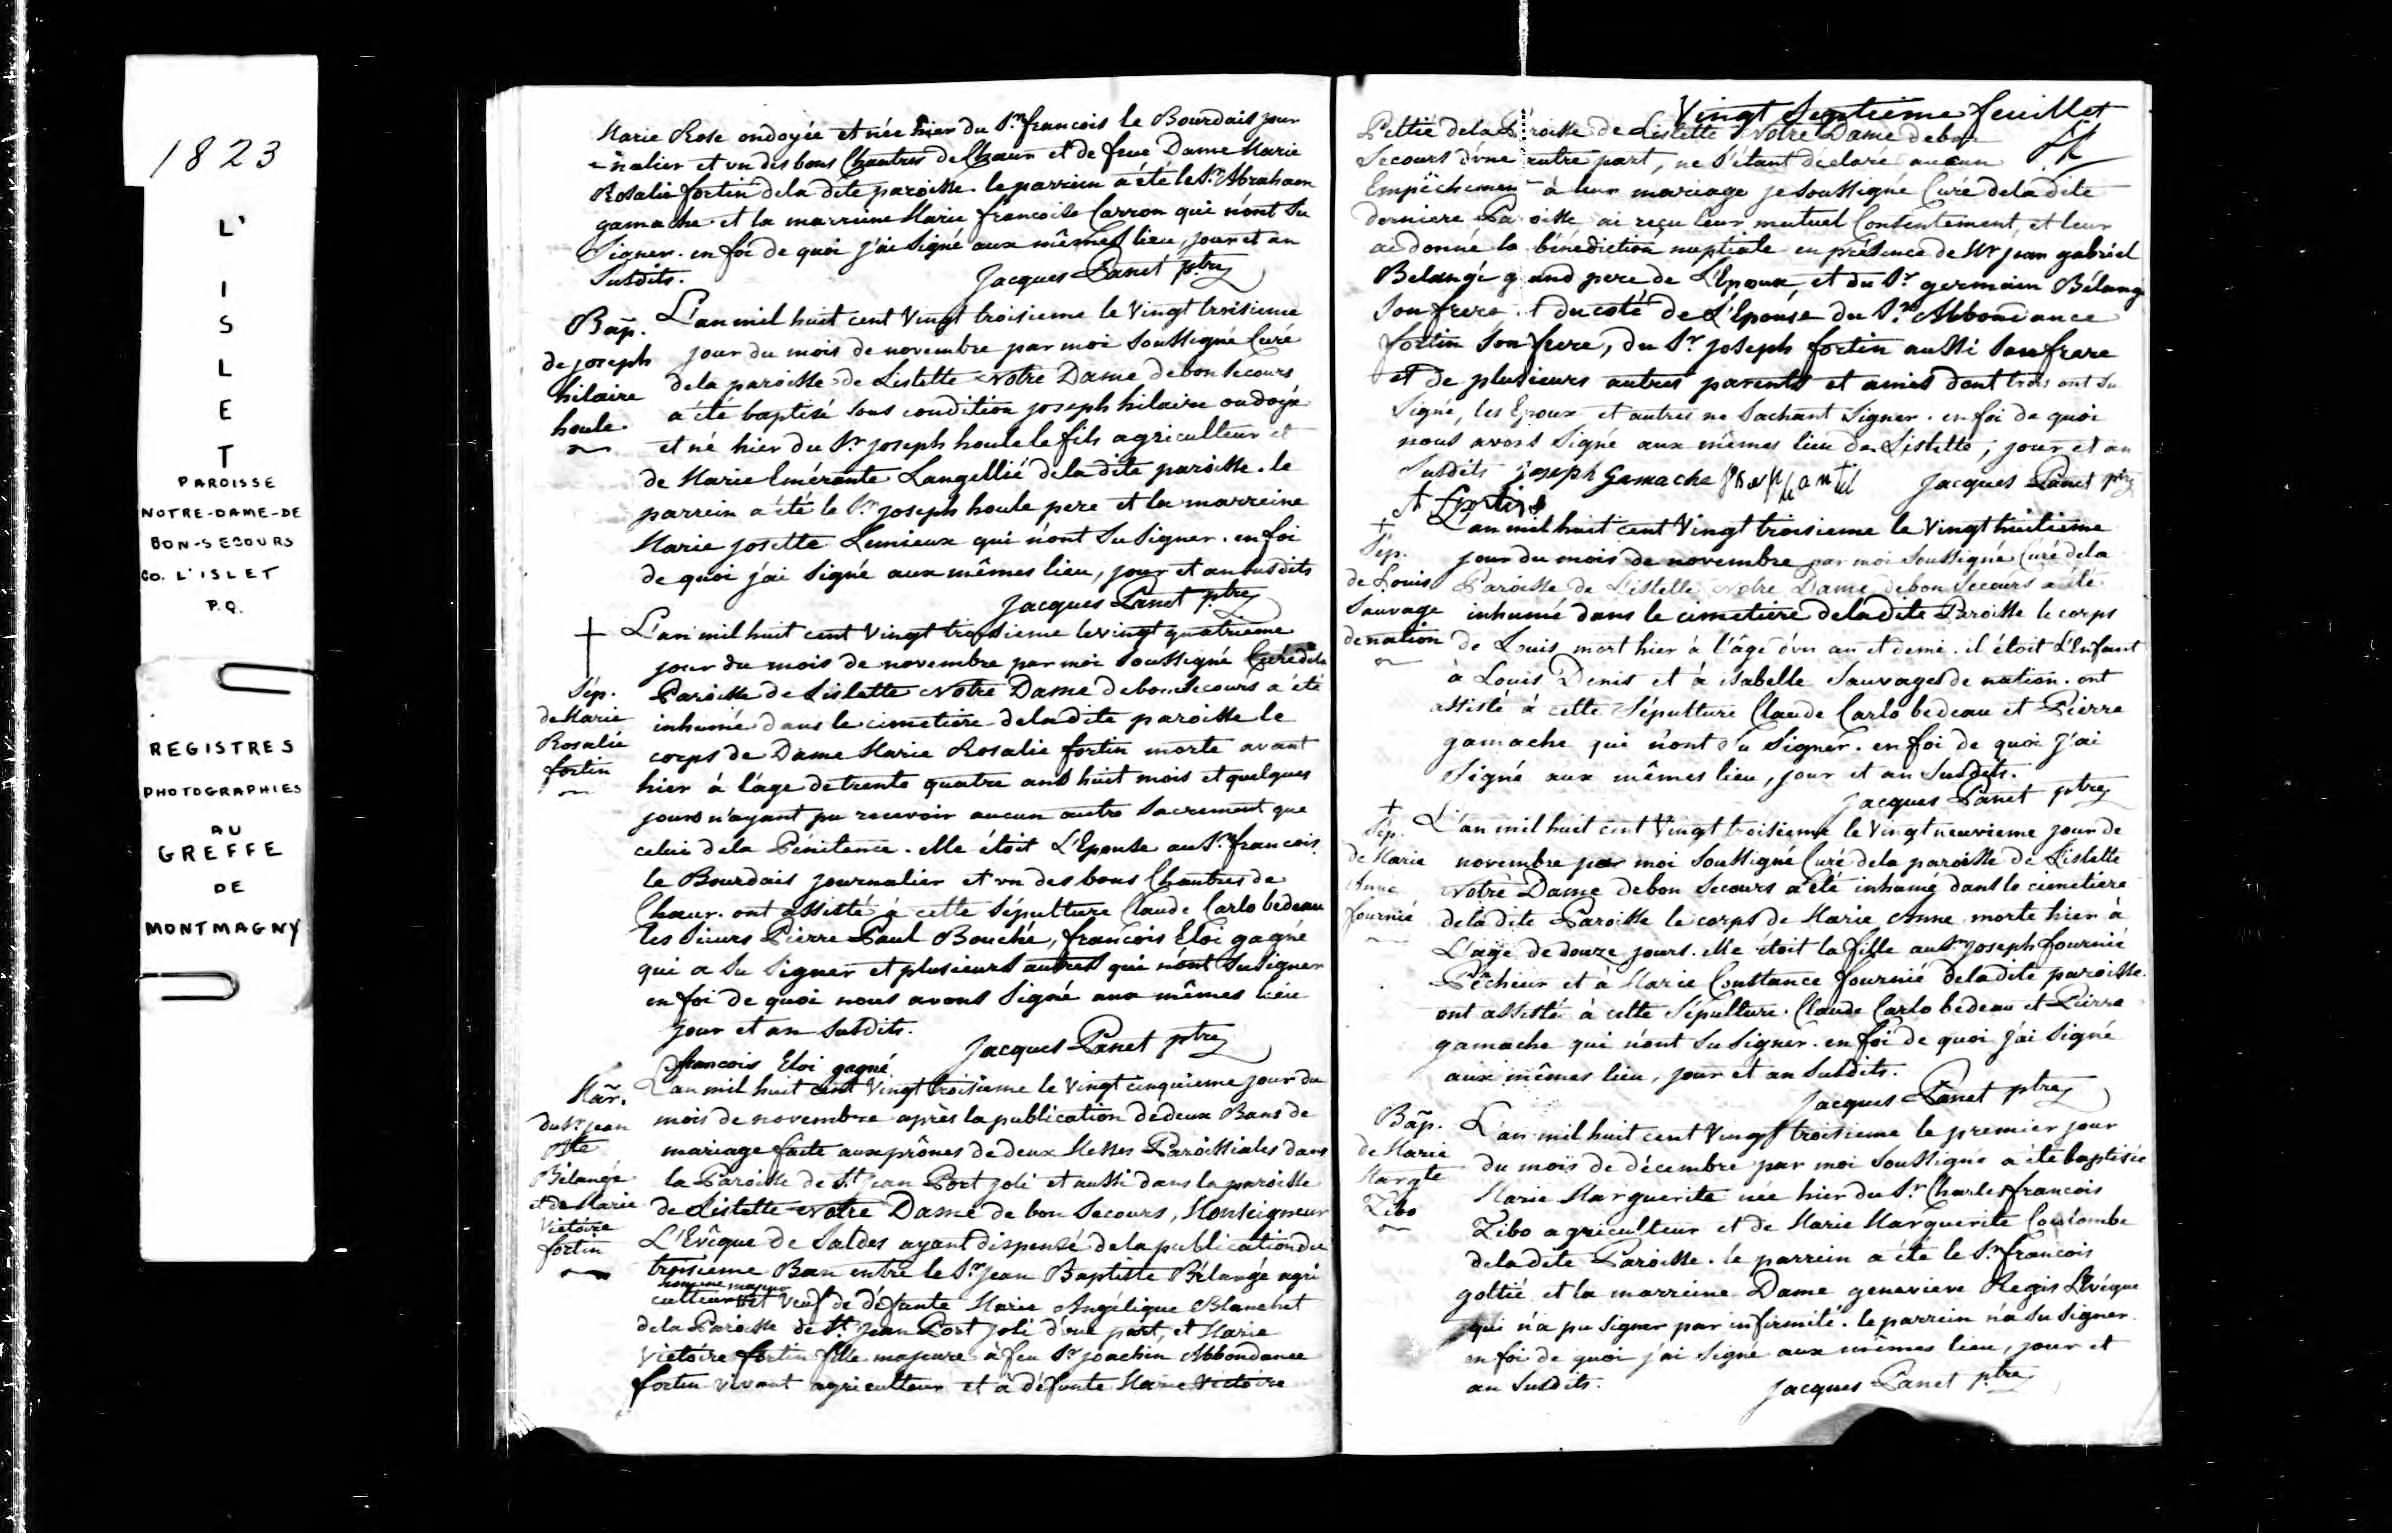 1823
L'
I
S
L
E
T
PAROISSE
NOTRE-DAME-DE
BON-SECOURS
CO. L'ISLET
P.Q.
REGISTRES
PHOTOGRAPHIES
AU
GREFFE
DE
MONTMAGNY
Marie Rose ondoyée et née hier du Sr. francois le Bourdais jour
=nalier et un des bons Chantres de Chœur et de feue Dame Marie
Rosalie fortin de la dite paroisse. le parrein a été le Sr. Abraham
gamache et la marreine Marie francoise Carron qui n'ont Su
Signer. en foi de quoi j'ai Signé aux mêmes lieu, jour et an
Susdits.
Jacques Panet ptre
Bap.
de joseph
hilaire
houle.
L'an mil huit cent Vingt troisieme le Vingt troisieme
jour du mois de novembre par moi Soussigné Curé
de la paroisse de Lislette Notre Dame de bon Secours
a été baptisé sous condition joseph hilaire ondoyé
et né hier du Sr. joseph houle le fils agriculteur et
de Marie Emérante Langellié de la dite paroisse. le
parrein a été le Sr. joseph houle pere et la marreine
Marie josette Lemieux qui n'ont Su Signer. en foi
de quoi j'ai Signé aux mêmes lieu, jour et an susdits
Jacques Panet ptre
Sép.
de Marie
Rosalie
fortin
L'an mil huit cent Vingt troisieme le vingt quatrieme
jour du mois de novembre par moi Soussigné Curé de la
Paroisse de Lislette Notre Dame de bon Secours a été
inhumé dans le cimetiere de la dite paroisse le
corps de Dame Marie Rosalie fortin morte avant
hier à l'age de trente quatre ans huit mois et quelques
jours n'ayant pu recevoir aucun autre Sacrement que
celui de la Pénitence. elle étoit L'Epouse au Sr. francois
le Bourdais journalier et un des bons Chantres de
Chœur. ont assisté à cette Sépulture Claude Carlo bedeau
les Sieurs Pierre Paul Bouché, francois Eloi gagné
qui a Su Signer et plusieurs autres qui n'ont Su Signer
en foi de quoi nous avons Signé aux mêmes lieu
jour et an Susdits.
Jacques Panet ptre
francois Eloi gagné
Mar.
du Sr. jean
Bte
Bélangé
et de Marie
Victoire
fortin
L'an mil huit cent Vingt troisieme le Vingt cinquieme jour du
mois de novembre après la publication de deux Bans de
mariage faite aux prônes de deux Messes Paroissiales dans
la Paroisse de St. Jean Port joli et aussi dans la paroisse
de Lislette Notre Dame de bon Secours, Monseigneur
L'Evêque de Saldes ayant dispensé de la publication du
troisieme Ban entre le Sr. Jean Baptiste Bélangé agri
homme majeur
culteur et Veuf de Défunte Marie Angélique Blanchet
de la Paroisse de St. Jean Port joli d'une part, et Marie
Victoire fortin fille majeure à feu Sr. joachin Abbondance
fortin vivant agriculteur et à défunte Marie Victoire
Vingt Septieme feuillet
Peltié de la Paroisse de Lislette Notre Dame de bon
Secours d'une autre part, ne S'étant déclaré aucun
Empêchement à leur mariage je Soussigné Curé de la dite
derniere Paroisse ai reçu leur mutuel Consentement, et leur
ai donné la bénédiction nuptiale en présence de Mr jean gabriel
Belangé grand pere de L'Epoux, et du Sr. germain Bélangé
Son frere, et du coté de L'Epouse du Sr. Abbondance
fortin Son frere, du Sr. joseph fortin aussi Son frere
et de plusieurs autres parents et amis dont trois ont Su
Signé, les Epoux et autres ne Sachant Signer. en foi de quoi
nous avons Signé aux mêmes lieu de Lislette, jour et an
Susdits joseph Gamache
Jacques Panet ptre
A Fortin
Sép.
de Louis
Sauvage
de nation
L'an mil huit cent Vingt troisieme le Vingt huitieme
jour du mois de novembre par moi Soussigné Curé de la
Paroisse de L'islette Notre Dame de bon Secours a été
inhumé dans le cimetiere de la dite Paroisse le corps
de Louis mort hier à l'âge d'un an et demi. il étoit L'Enfant
à Louis Denis et à isabelle Sauvages de nation. ont
assisté à cette Sépulture Claude Carlo bedeau et Pierre
gamache qui n'ont Su Signer. en foi de quoi j'ai
Signé aux mêmes lieu, jour et an Susdits.
Jacques Panet ptre
Sép.
de Marie
Anne
fournié
L'an mil huit cent Vingt troisieme le Vingt neuvieme jour de
novembre par moi Soussigné Curé de la paroisse de Lislette
Notre Dame de bon Secours a été inhumé dans le cimetiere
de la dite Paroisse le corps de Marie Anne morte hier à
L'age de douze jours. elle étoit la fille au Sr. joseph fournié
Pêcheur et à Marie Constance fournié de la dite paroisse.
ont assisté à cette Sépulture Claude Carlo bedeau et Pierre
gamache qui n'ont Su Signer. en foi de quoi j'ai Signé
aux mêmes lieu, jour et an Susdits.
Jacques Panet ptre
Bap.
de Marie
Margte
Zibo
L'an mil huit cent Vingt troisieme le premier jour
du mois de décembre par moi Soussigné a été baptisée
Marie Marguerite née hier du Sr. Charles francois
Zibo agriculteur et de Marie Marguerite Coulombe
de la dite Paroisse. le parrein a été le Sr. francois
goltié et la marreine Dame genevieve Regis Lévêque
qui n'a pu Signer par infirmité. le parrein n'a Su Signer
en foi de quoi j'ai Signé aux mêmes lieu, jour et
an Susdits.
Jacques Panet ptre